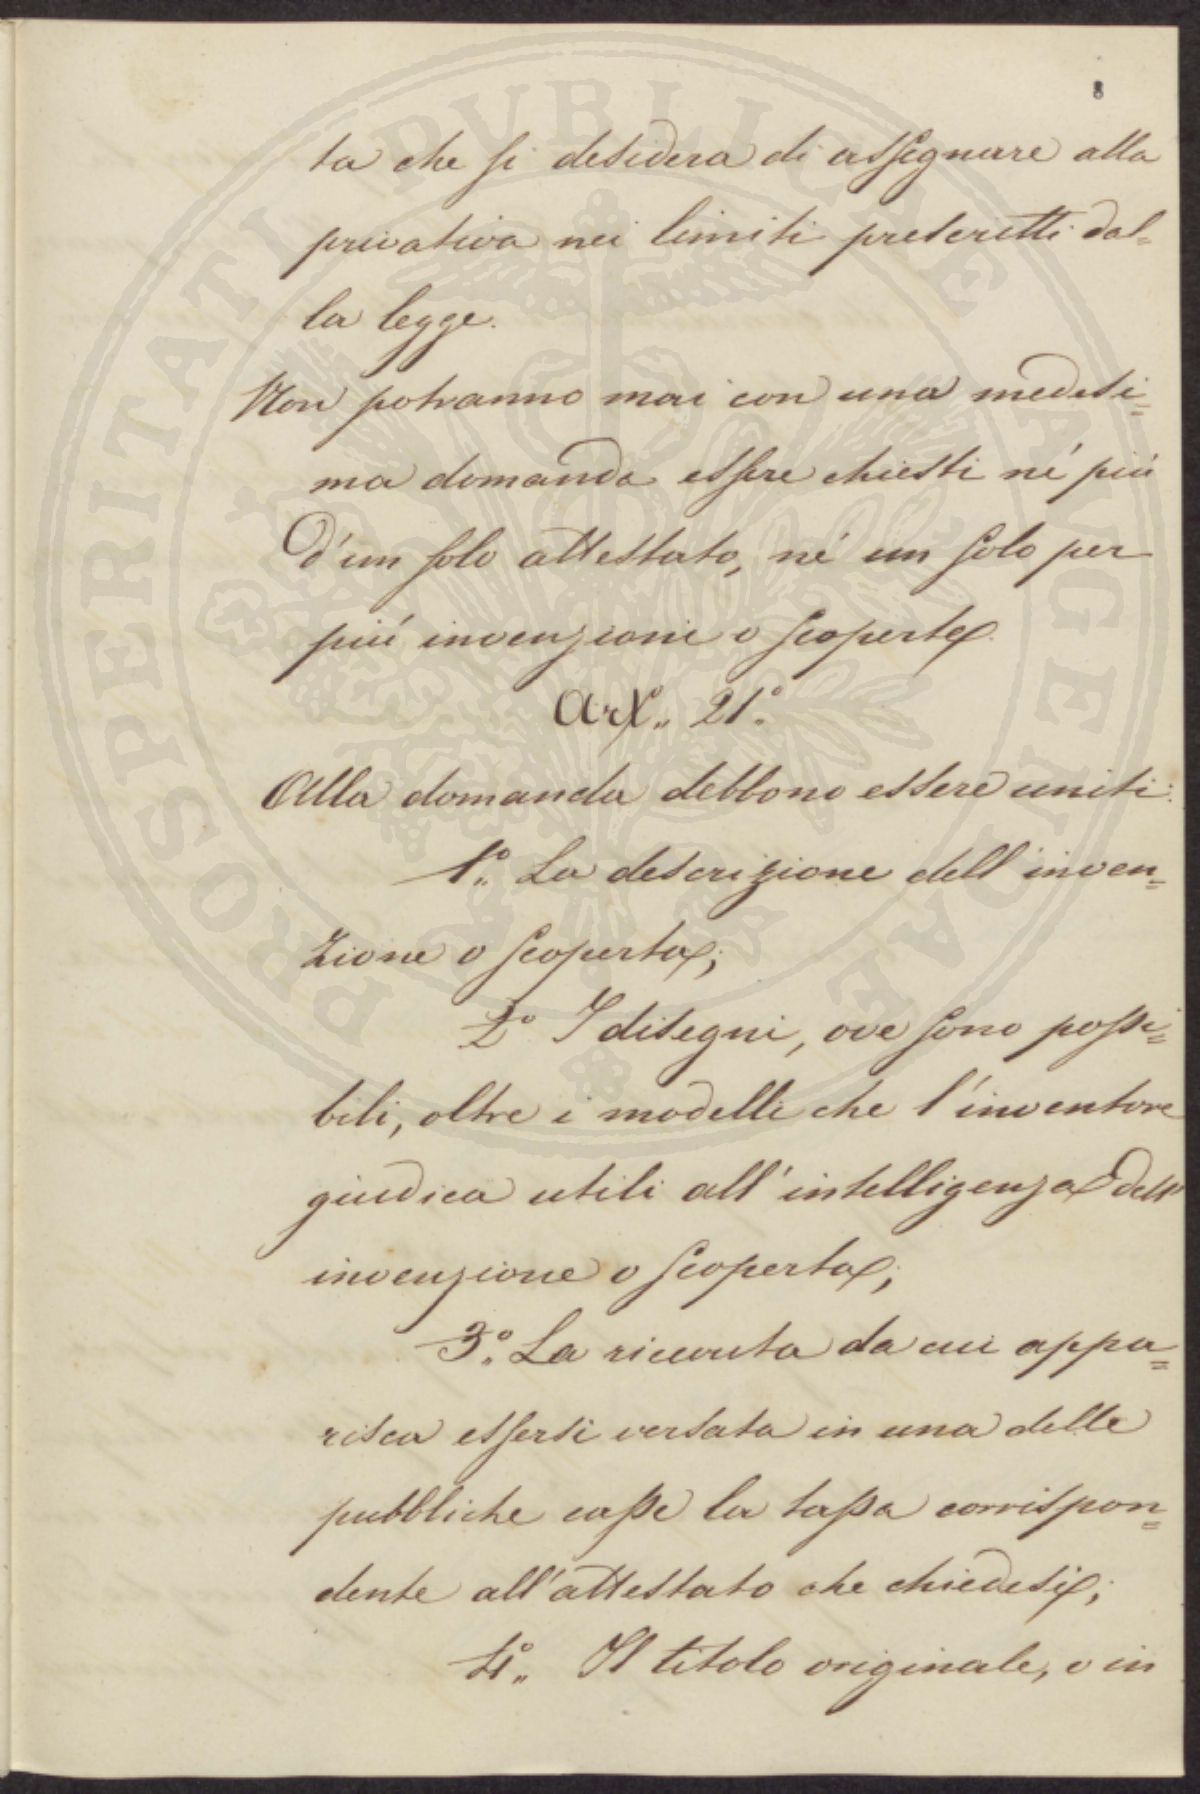 8
ta che si desidera di assegnare alla
privativa nei limiti prescritti dal=
la legge.
Non potranno mai con una medesi=
ma domanda essere chiesti nè più
d'un solo attestato, nè un solo per
più invenzioni o scoperte.
Art. 21°.
Alla domanda debbono essere uniti:
1°. La descrizione dell'inven=
zione o scoperta;
2° I disegni, ove sono possi=
bili, oltre i modelli che l'inventore
giudica utili all'intelligenza dell'
invenzione o scoperta;
3°. La ricevuta da cui appa=
risca essersi versata in una delle
pubbliche casse la tassa corrispon=
dente all'attestato che chiedesi;
4°. Il titolo originale, o in
PROSPERITATI PUBLICAE AUGENDAE